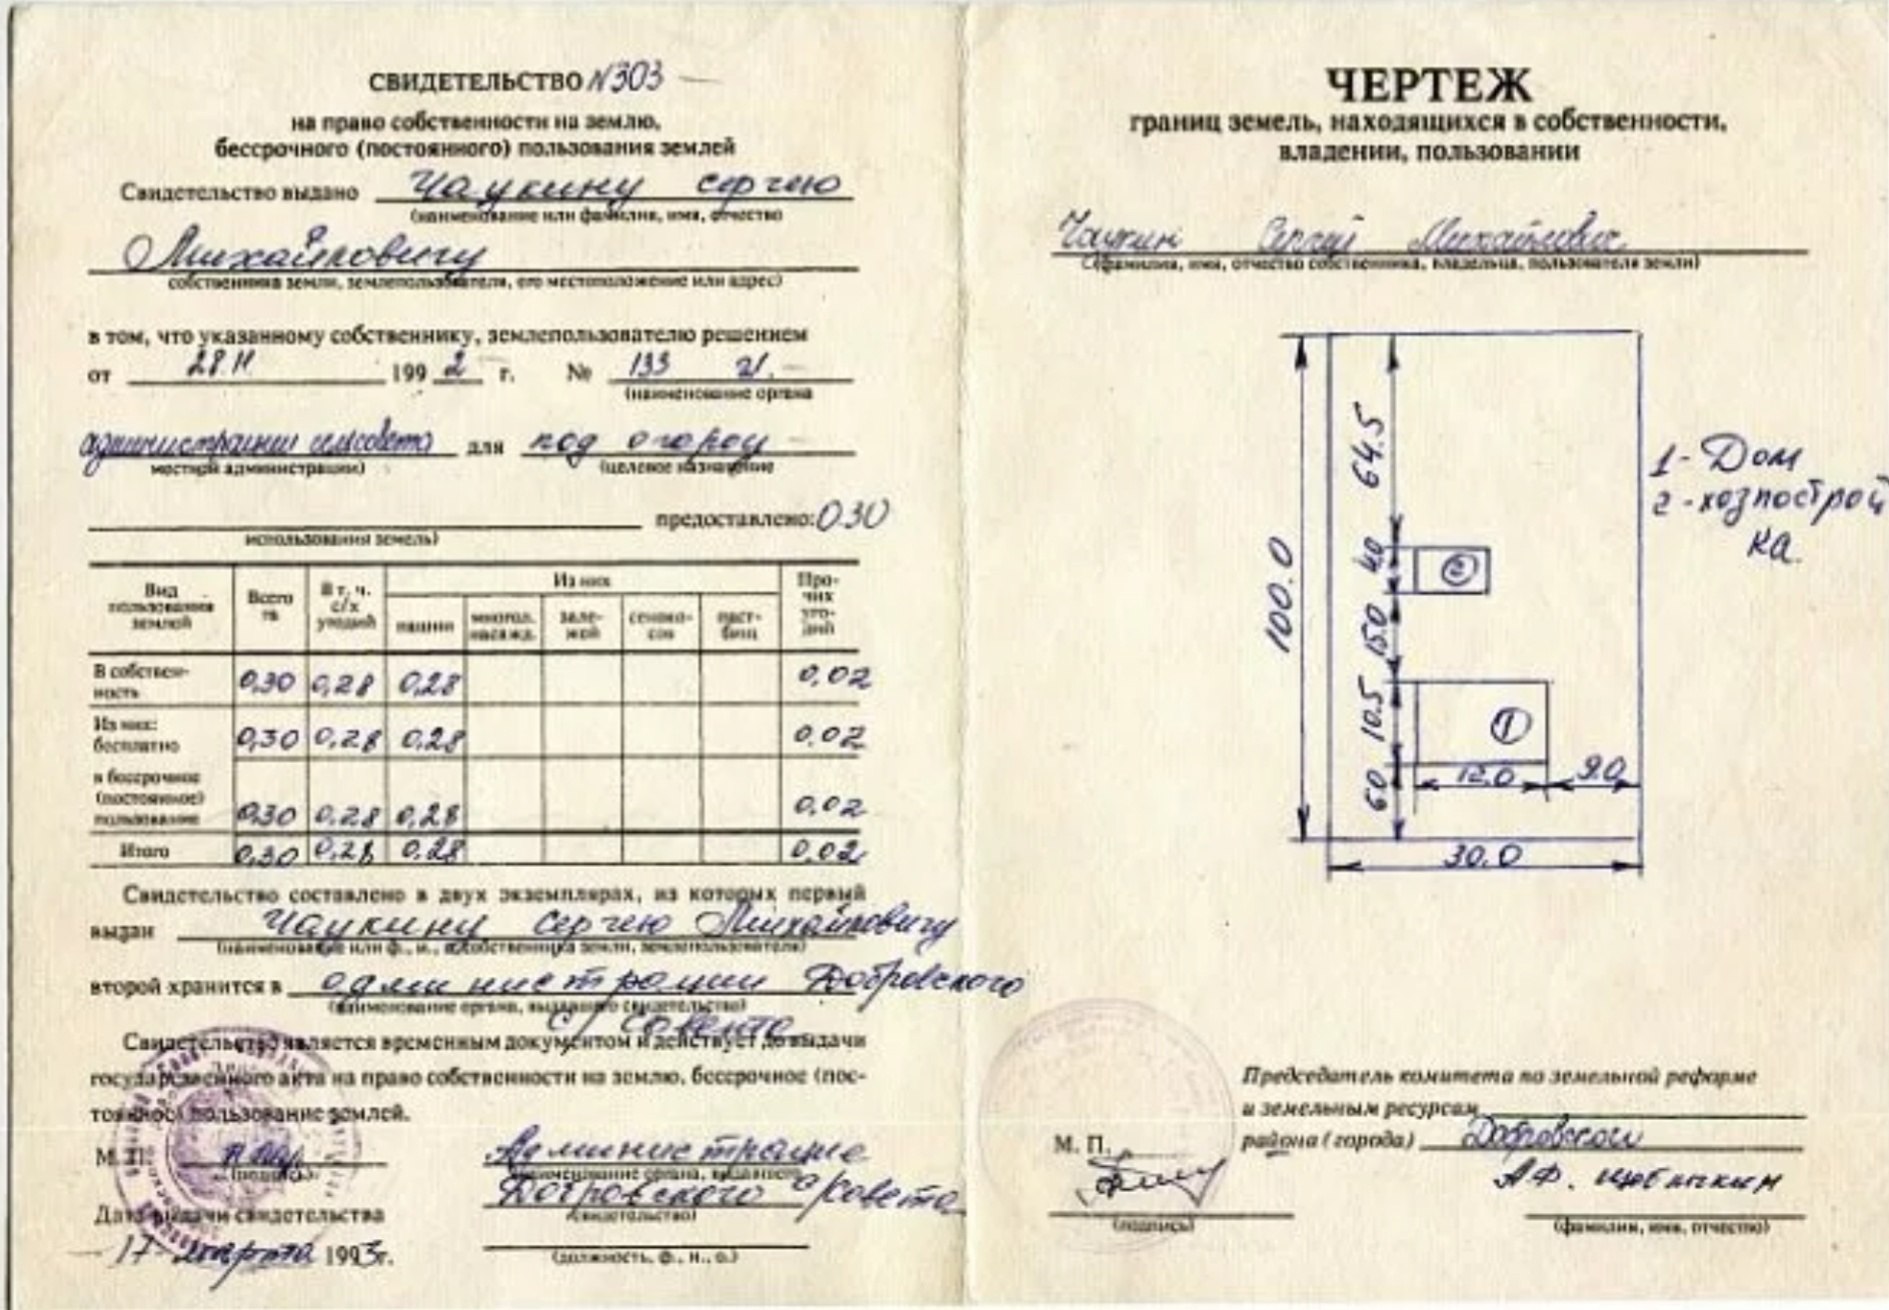 СВИДЕТЕЛЬСТВО N303
на право собственности на землю,
бессрочного (постоянного) пользования землей
Свидетельство выдано Чаукину Сергею
(наименование или фамилия, имя, отчество
Михайловичу
собственника земли, землепользователя, его местоположение или адрес)
в том, что указанному собственнику, землепользователю решением
от 28.11 1992 г. № 133
(наименование органа
администрации сельсовета для под огород
местной администрации) (целевое назначение
предоставлено: 0.30
использования земель)
Вид пользования землей Всего га В т. ч. с/х угодий Из них Прочих угодий
пашни многол. насажд. зале-жей сеноко-сов паст-бищ
В собствен-ность 0,30 0,28 0,28 0,02
Из них: бесплатно 0,30 0,28 0,28 0.02
в бессрочное (постоянное) пользование 0,30 0,28 0,28 0,02
Итого 0,30 0,28 0.28 0,02
Свидетельство составлено в двух экземплярах, из которых первый
выдан Чаукину Сергею Михайловичу
(наименование или ф., и., о. собственника земли, землепользователя)
второй хранится в администрации Добровского
(наименование органа, выдавшего свидетельство)
с/совета
Свидетельство является временным документом и действует до выдачи
государственного акта на право собственности на землю, бессрочное (пос-
тоянное) пользование землей.
М. П.
(подпись)
Администрация
(наименование органа, выдавшего
Добровского с/совета
свидетельство)
Дата выдачи свидетельства
17 марта 1993г.
(должность, ф., и., о.)
ЧЕРТЕЖ
границ земель, находящихся в собственности,
владении, пользовании
Чаукин Сергей Михайлович
(фамилия, имя, отчество собственника, владельца, пользователя земли)
100.0
64.5
4,0
15.0
10.5
6.0
2
1
12.0
9.0
30.0
1- Дом
2 - хозпострой
ка.
Председатель комитета по земельной реформе
и земельным ресурсам
района (города) Добровского
М. П.
А.Ф.
(подпись)
(фамилия, имя, отчество)